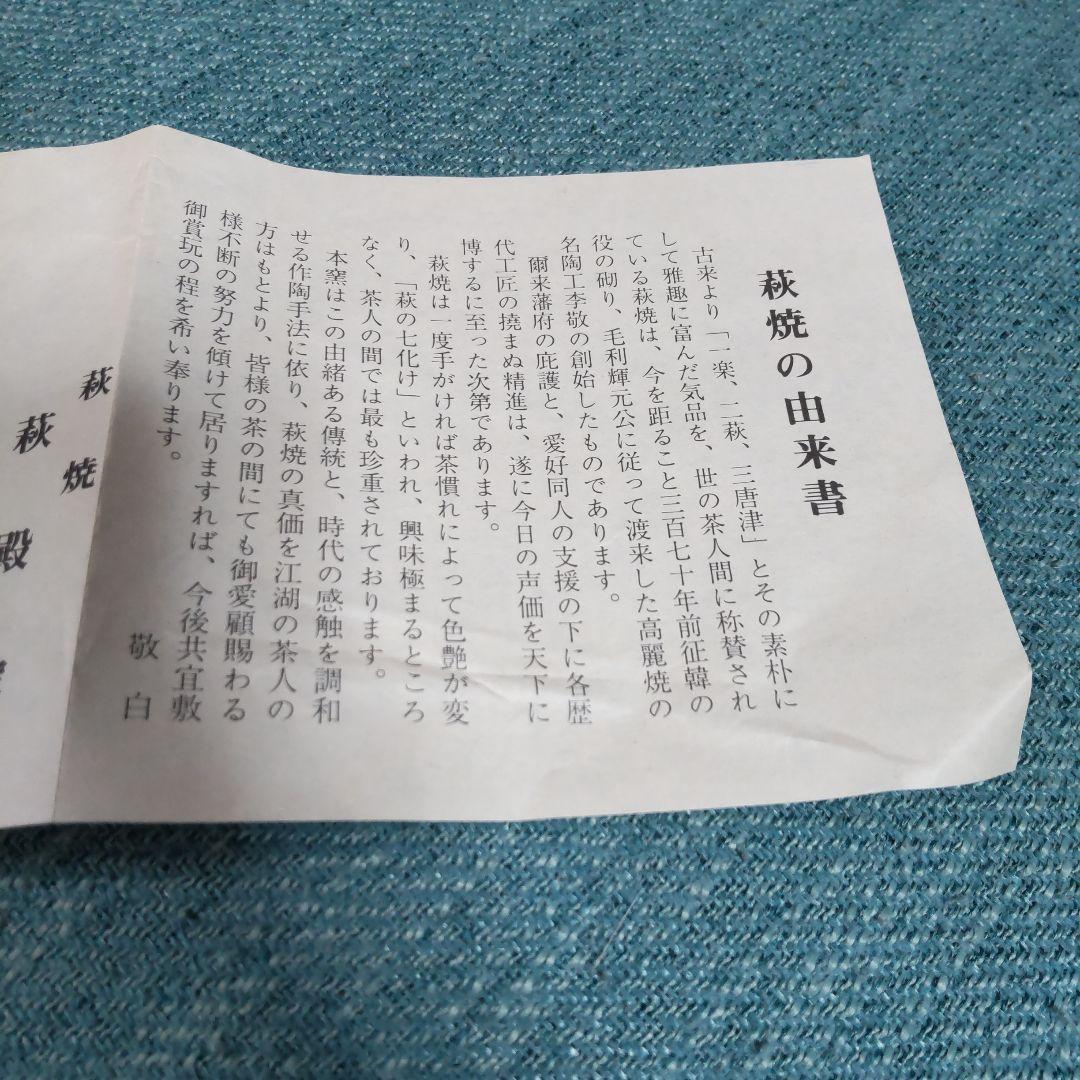 萩焼の由来書
古来より「一楽、二萩、三唐津」とその素朴に
して雅趣に富んだ気品を、世の茶人間に称賛され
ている萩焼は、今を距ること三百七十年前征韓の
役の砌り、毛利輝元公に従って渡来した高麗焼の
名陶工李敬の創始したものであります。
爾来藩府の庇護と、愛好同人の支援の下に各歴
代工匠の撓まぬ精進は、遂に今日の声価を天下に
博するに至った次第であります。
萩焼は一度手がければ茶慣れによって色艶が変
り、「萩の七化け」といわれ、興味極まるところ
なく、茶人の間では最も珍重されております。
本窯はこの由緒ある傳統と、時代の感触を調和
せる作陶手法に依り、萩焼の真価を江湖の茶人の
方はもとより、皆様の茶の間にても御愛顧賜わる
様不断の努力を傾けて居りますれば、今後共宜敷
御賞玩の程を希い奉ります。
敬白
萩焼
萩
殿